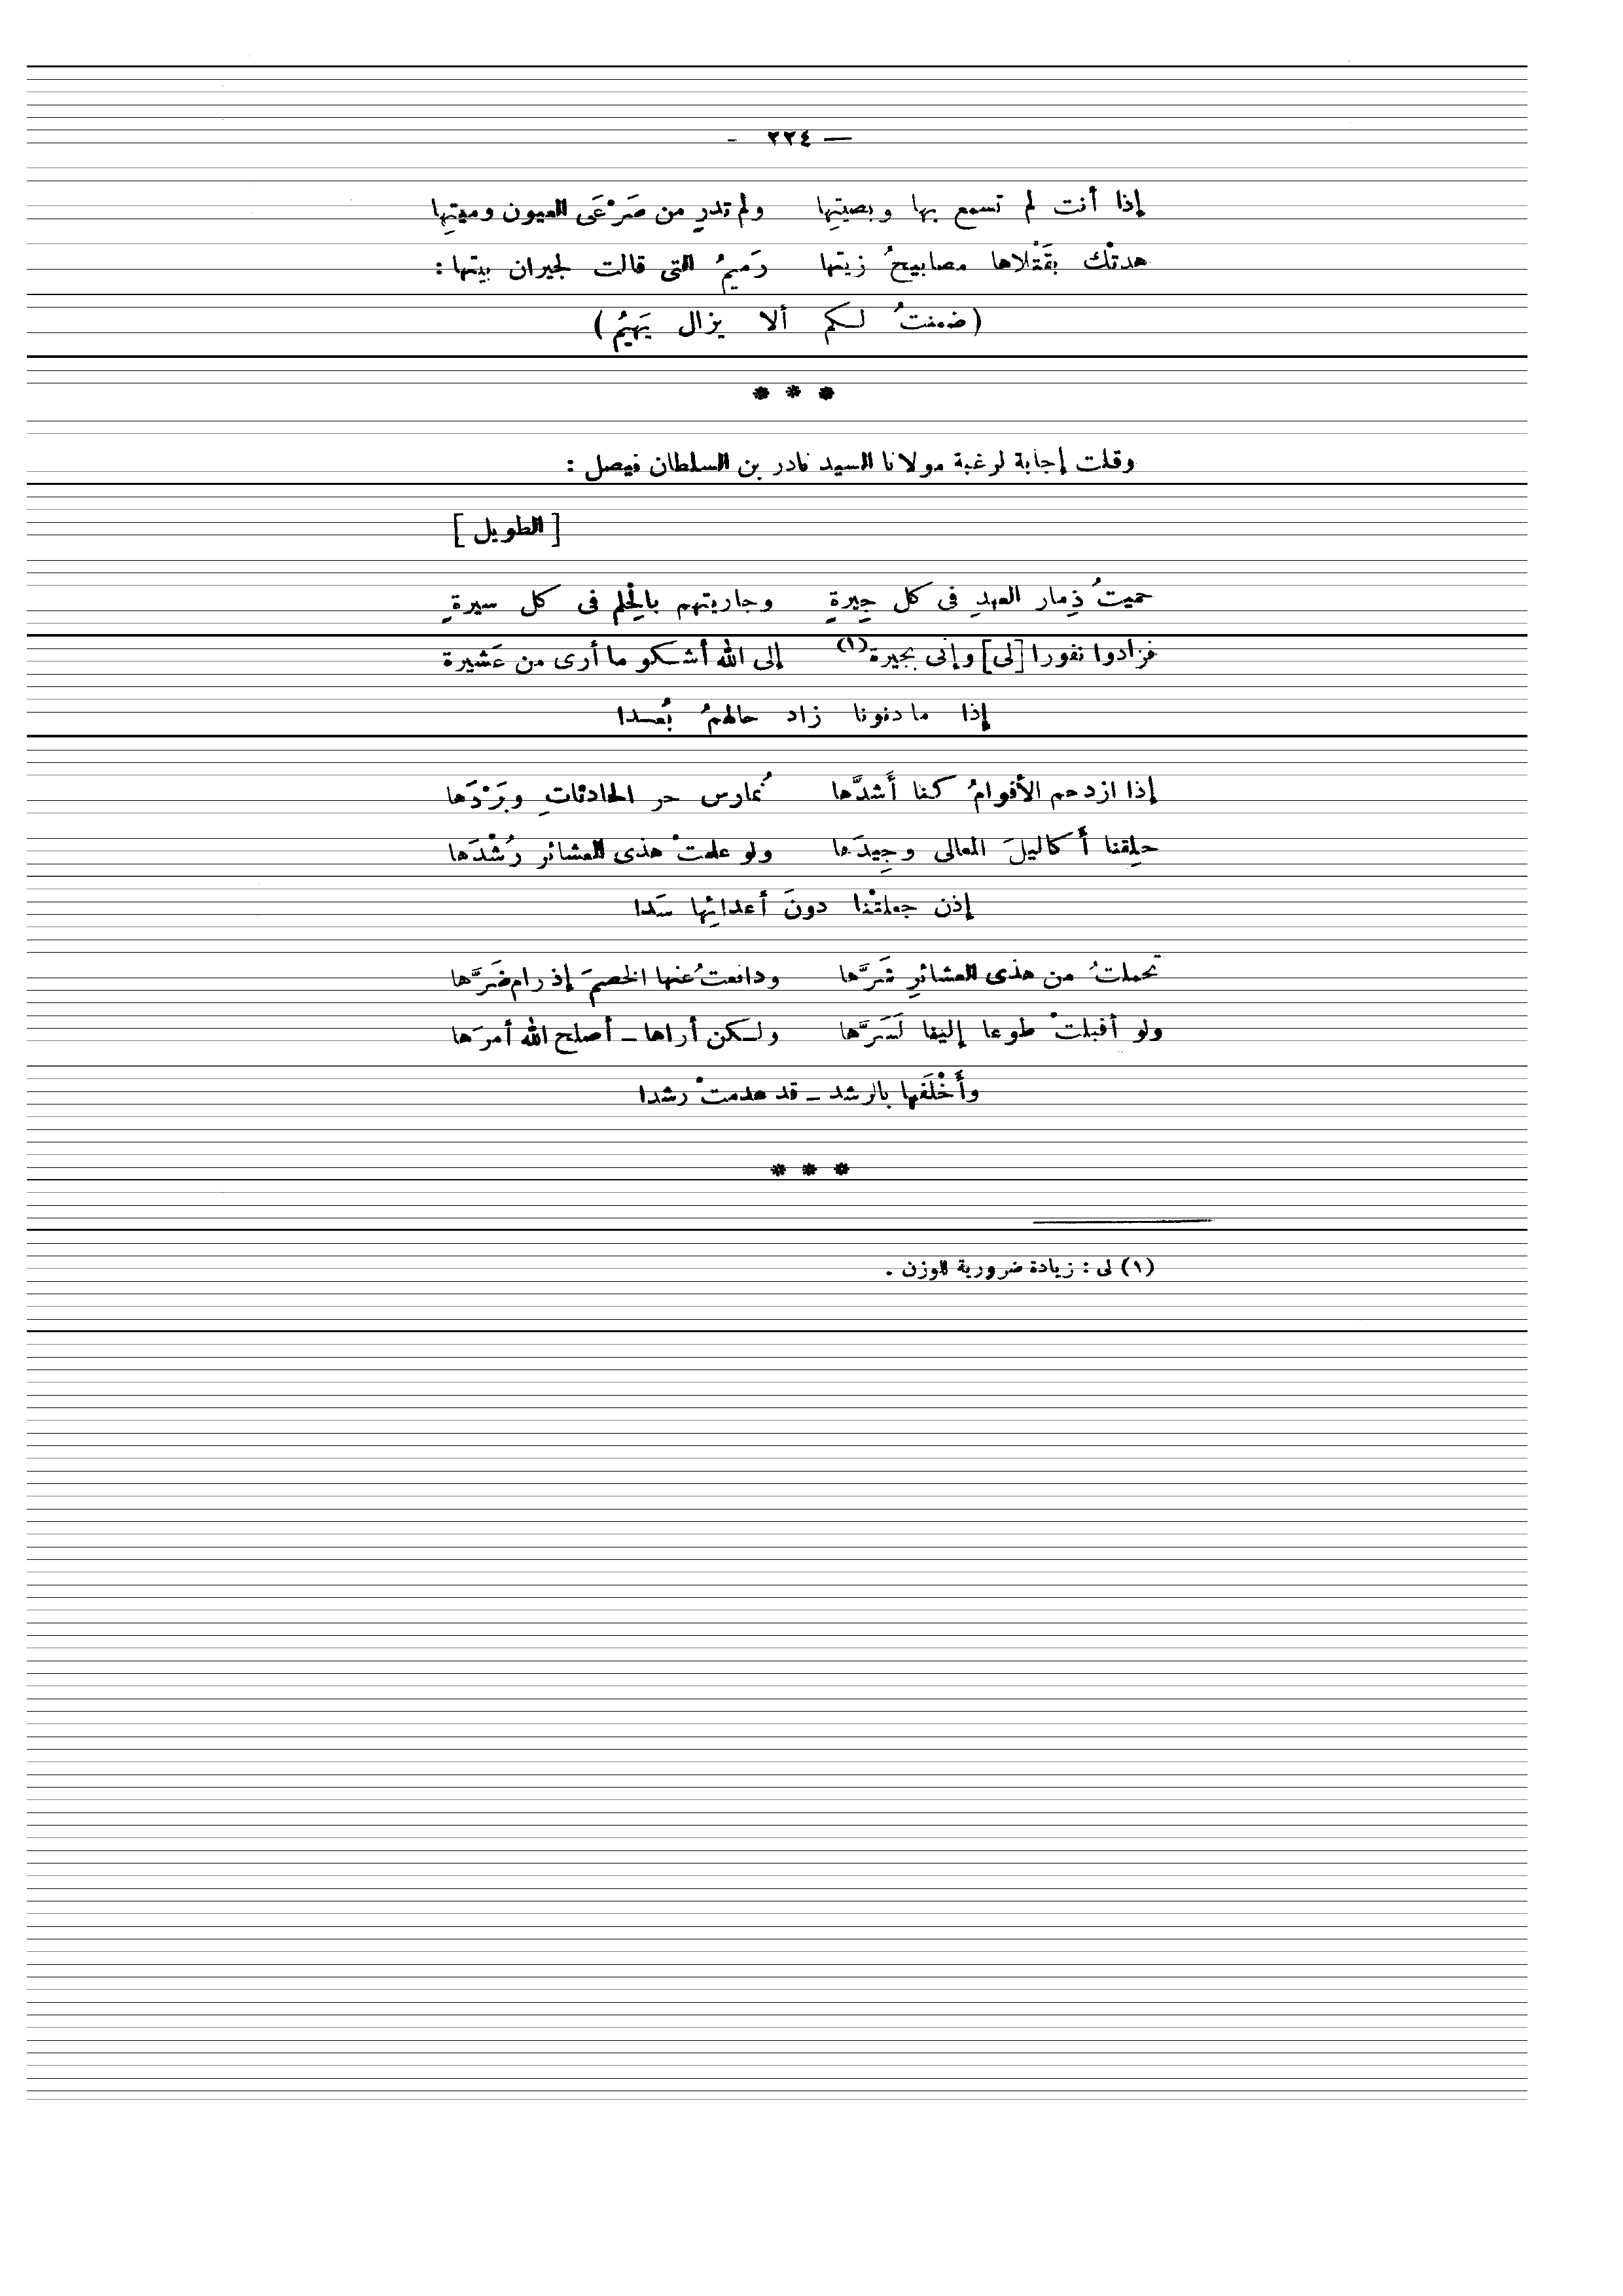 — ٢٢٤ -
إذا أنت لم تسمع بها وبصيتِها ولم تدرِ من صَرْعَى العيون وميتِها
هدتْك بقَتْلاها مصابيحُ زيتها رَميمُ التى قالت لجيران بيتها :
(ضمنتُ لكم ألا يزال يَهيمُ)
* * *
وقلت إجابة لرغبة مولانا السيد نادر بن السلطان فيصل :
[الطويل]
حميتُ ذِمار العهدِ فى كل جِيرةٍ وجاريتهم بالحِلم فى كل سيرةٍ
فزادوا نفورا [لى] وإنى بجيرة(١) إلى الله أشكو ما أرى من عَشيرة
إذا ما دنونا زاد حالهمُ بُعدا
إذا ازدحم الأقوامُ كنا أَشدَّها نُمارس حر الحادثاتِ وبَرْدَها
حلِقنا أكاليلَ المعالى وجِيدَها ولو علمتْ هذى العشائر رُشْدَها
إذن جعلتْنا دونَ أعدائِها سَدا
تحملتُ من هذى العشائرِ شَرَّها ودافعتُ عنها الخصمَ إذ رام ضَرَّها
ولو أقبلتْ طوعا إلينا لَسَرَّها ولكن أراها - أصلح الله أمرَها
وأَخْلَفها بالرشد - قد هدمتْ رشدا
* * *
(١) لى : زيادة ضرورية للوزن .